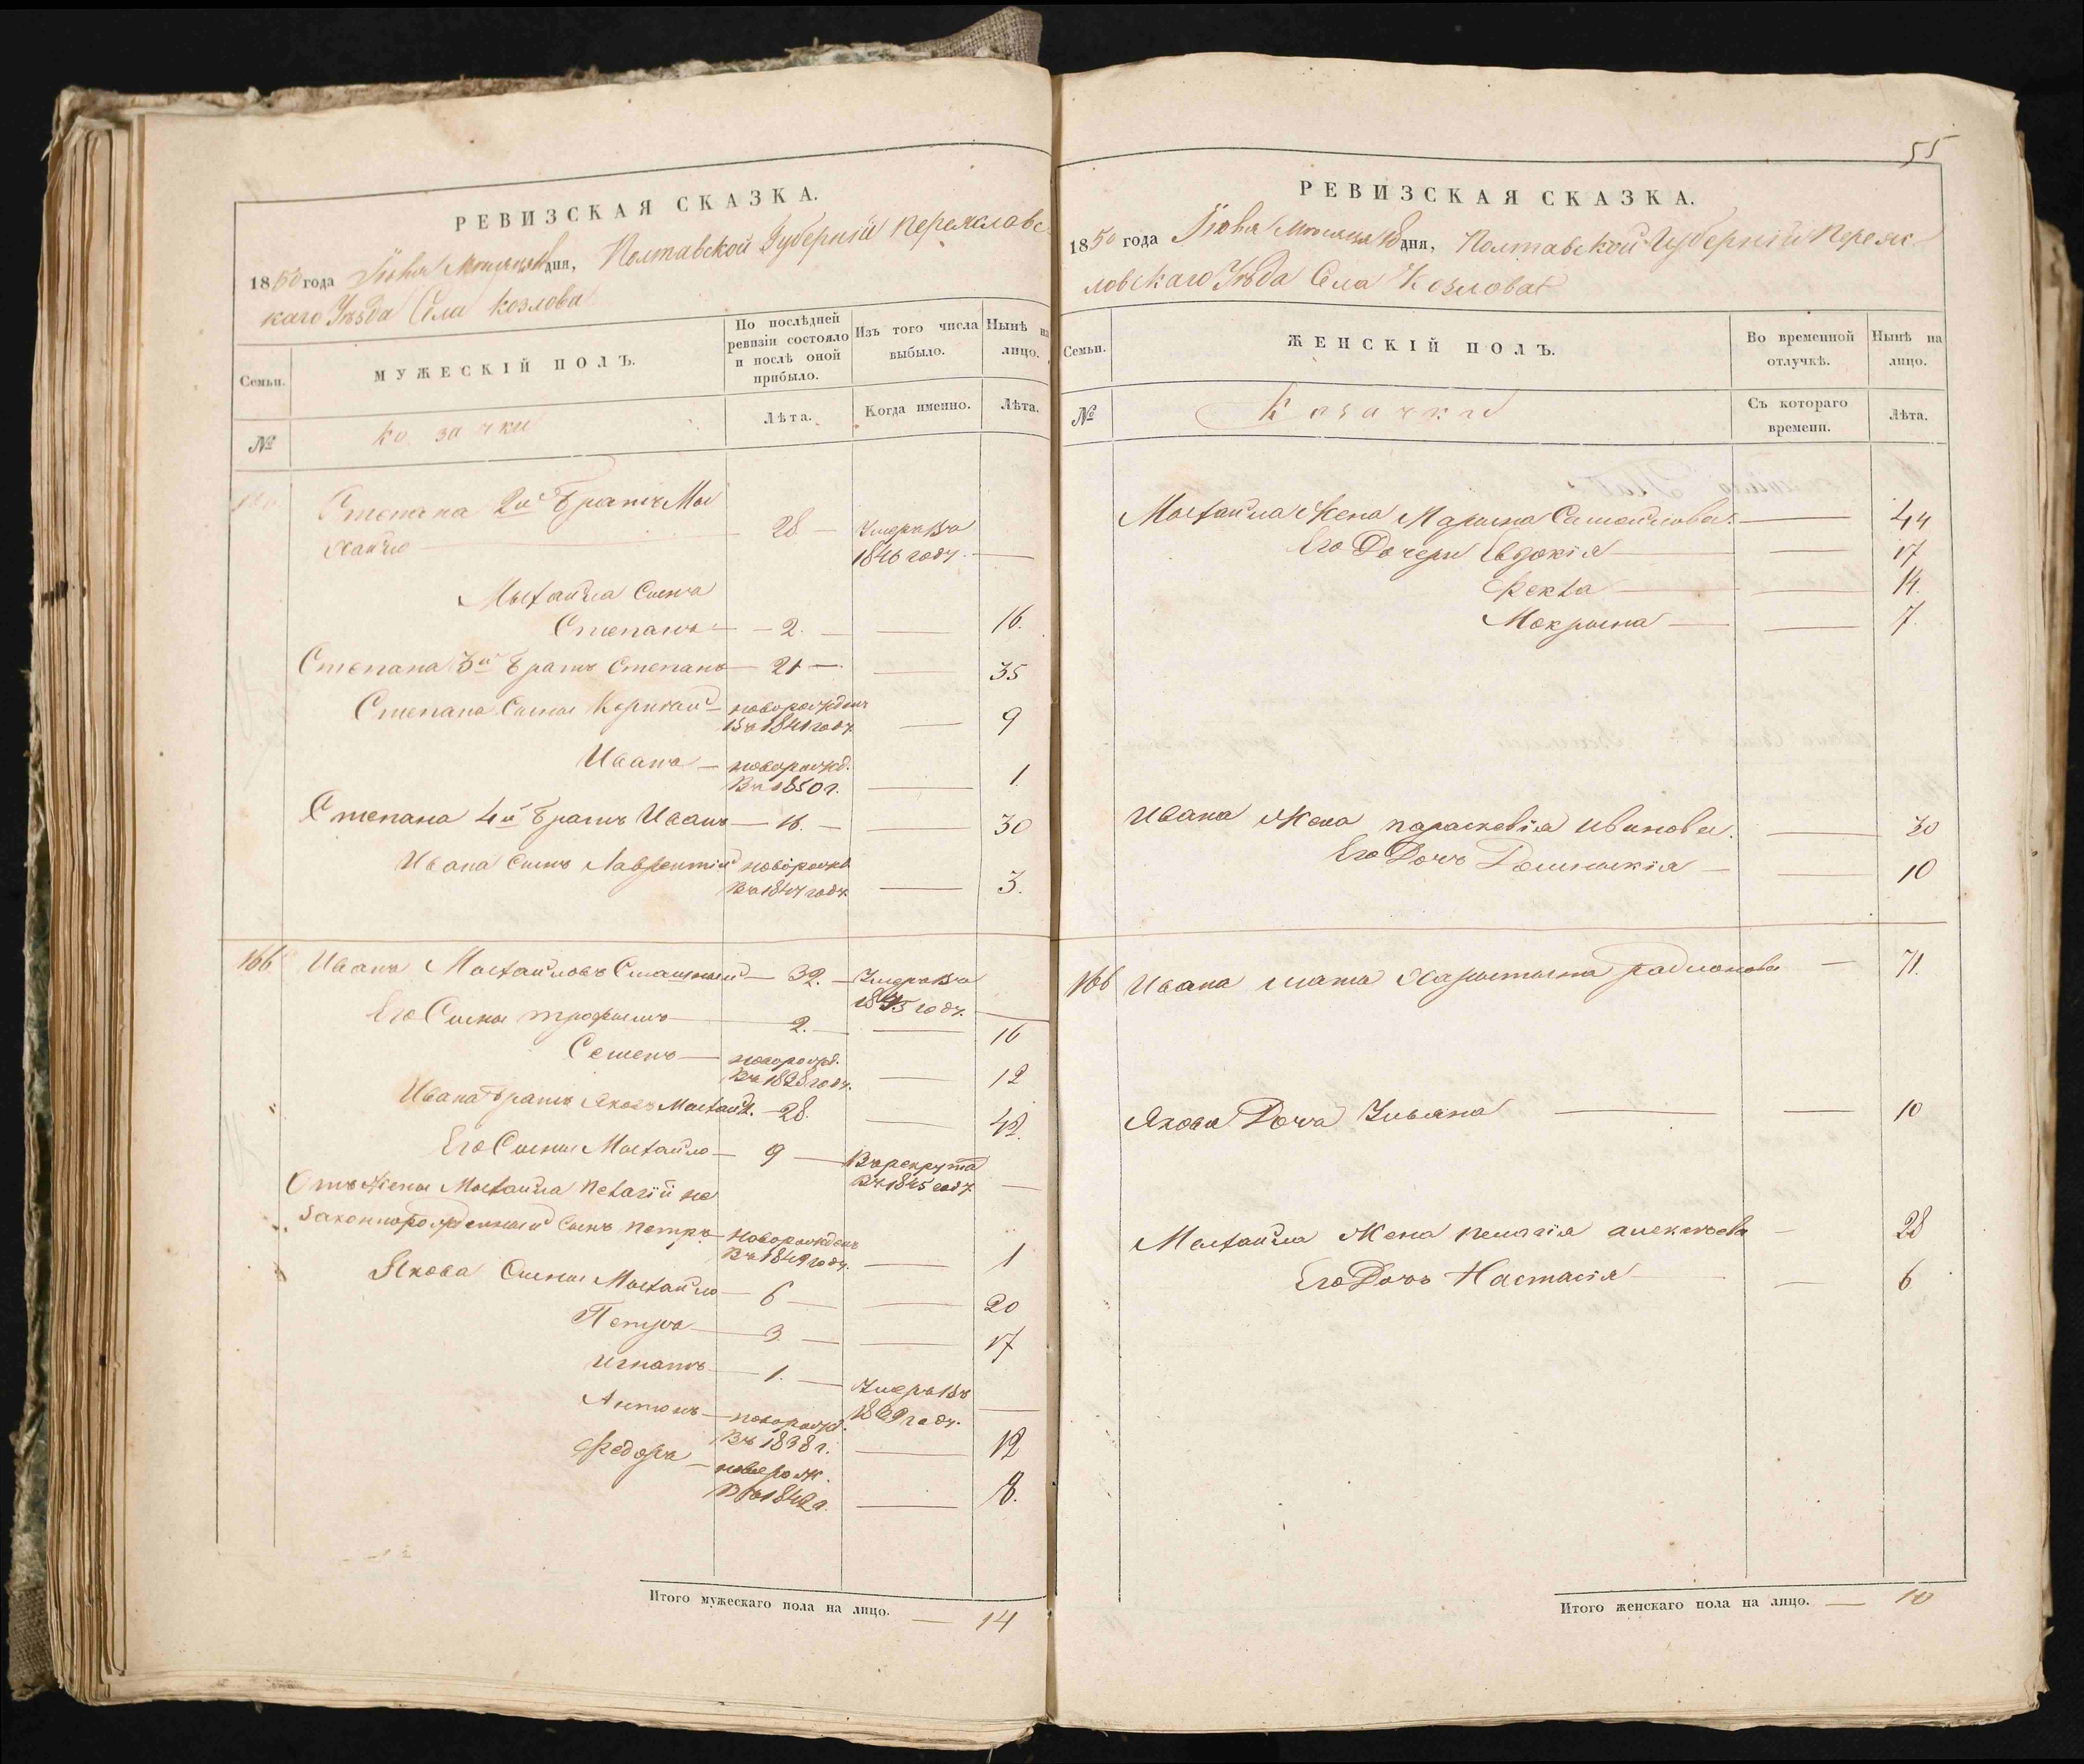 РЕВИЗСКАЯ СКАЗКА.
1850 года Іюня Месяца дня, Полтавской Губерніи Переяславс
каго Уѣзда Села Козлова
Семьи.
МУЖЕСКІЙ ПОЛЪ.
По послѣдней ревизіи состояло и послѣ оной прибыло.
Изъ того числа выбыло.
Нынѣ на лицо.
№
Козачки
Лѣта.
Когда именно.
Лѣта.
Степана 2й Братъ Мы
хайло — 28 — Умеръ въ 1846 году —
Мыхайла Сынъ
Степанъ — 2. — 16.
Степана 3й Братъ Степанъ — 21 — 35
Степана Сыны Корнилій — новорожденъ въ 1841 году — 9
Иванъ — новорожд. въ 1850 г. — 1
Степана 4й Братъ Иванъ — 16. — 30
Ивана Сынъ Лаврентій новорожд въ 1847 году — 3.
166 Иванъ Мыхайловъ — 32. — Умеръ въ 1845 году. —
Его Сыны Трофымъ — 2. — 16
Семенъ — новорожд. въ 1838 году. — 12
Ивана Братъ Яковъ Мыхайл. — 28. — 42.
Его Сыны Мыхайло — 9 — Въ рекрута въ 1845 году —
Отъ Жены Мыхайла Пелагіи не
законнорожденный Сынъ Петръ — новорожденъ въ 1849 году. — 1
Якова Сыны Мыхайло — 6 — 20
Петръ — 3 — 17
Игнатъ — 1. — Умеръ въ 1839 году. —
Антонъ — новорожд. въ 1838 г. — 12
Федоръ — новорож. въ 1842 г. — 8.
Итого мужескаго пола на лицо. — 14
55
РЕВИЗСКАЯ СКАЗКА.
1850 года Іюня Месяца 18 дня, Полтавской Губерніи Переяс
ловскаго Уѣзда Села Козлова
Семьи.
ЖЕНСКІЙ ПОЛЪ.
Во временной отлучкѣ.
Нынѣ на лицо.
№
Козачки
Съ котораго времени.
Лѣта.
Мыхайла Жена Марына Самойлова — 44
Его Дочери Евдокія — 17
Фекла — 14.
Мокрына — 7
Ивана Жена Параскевія Иванова. — 30
Его Дочъ Домникія — 10
166 Ивана мать Харытына Радионова — 71.
Якова Дочъ Ульяна — 10
Мыхайла Жена Пелагія Алексѣева — 28
Его Дочъ Настасія — 6
Итого женскаго пола на лицо. — 10